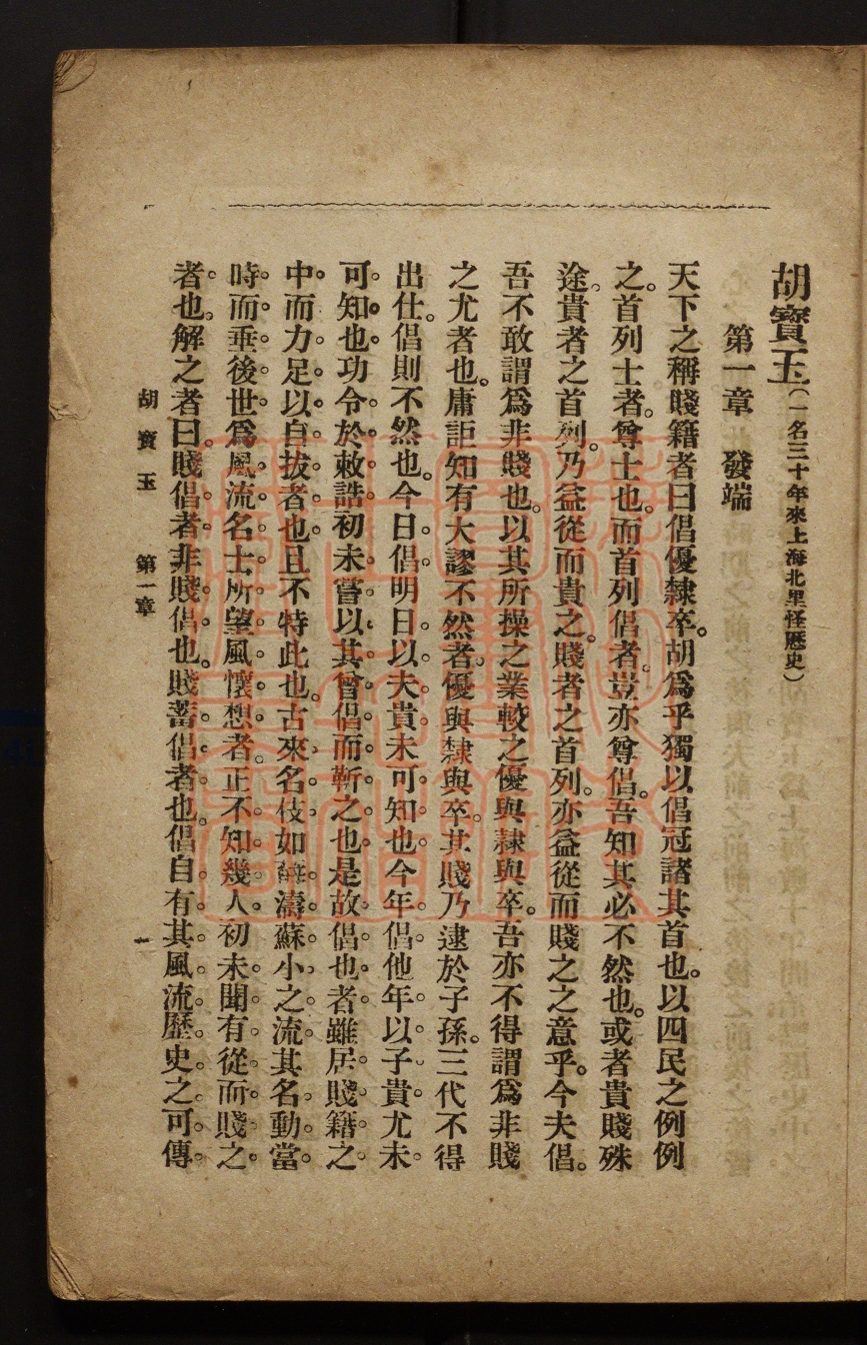 胡寶玉(一名三十年來上海北里怪歷史)
第一章 發端
天下之稱賤籍者曰倡優隸卒。胡爲乎獨以倡冠諸其首也。以四民之例例
之。首列士者。尊士也。而首列倡者。豈亦尊倡。吾知其必不然也。或者貴賤殊
途。貴者之首列。乃益從而貴之。賤者之首列。亦益從而賤之之意乎。今夫倡。
吾不敢謂爲非賤也。以其所操之業較之優與隸與卒。吾亦不得謂爲非賤
之尤者也。庸詎知有大謬不然者。優與隸與卒。其賤乃逮於子孫。三代不得
出仕。倡則不然也。今日倡明日以夫貴未可知也今年倡他年以子貴尤未
可知也功令於敕誥初未嘗以其曾倡而靳之也是故倡也者雖居賤籍之
中而力足以自拔者也且不特此也。古來名伎如薛濤蘇小之流其名動當
時而垂後世爲風流名士所望風懷想者。正不知幾人初未聞有從而賤之
者也。解之者曰。賤倡者非賤倡也。賤蓄倡者也。倡自有其風流歷史之可傳
胡寶玉 第一章
一